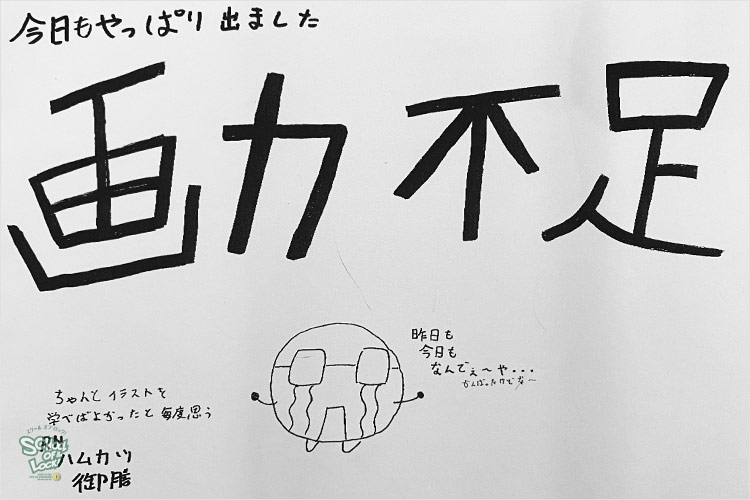 今日もやっぱり出ました
画力不足
昨日も
今日も
なんでぇ〜や・・・
がんばったけどな〜
ちゃんとイラストを
学べばよかったと毎度思う
RN
ハムカツ
御膳
SCHOOL
OF
LOCK!